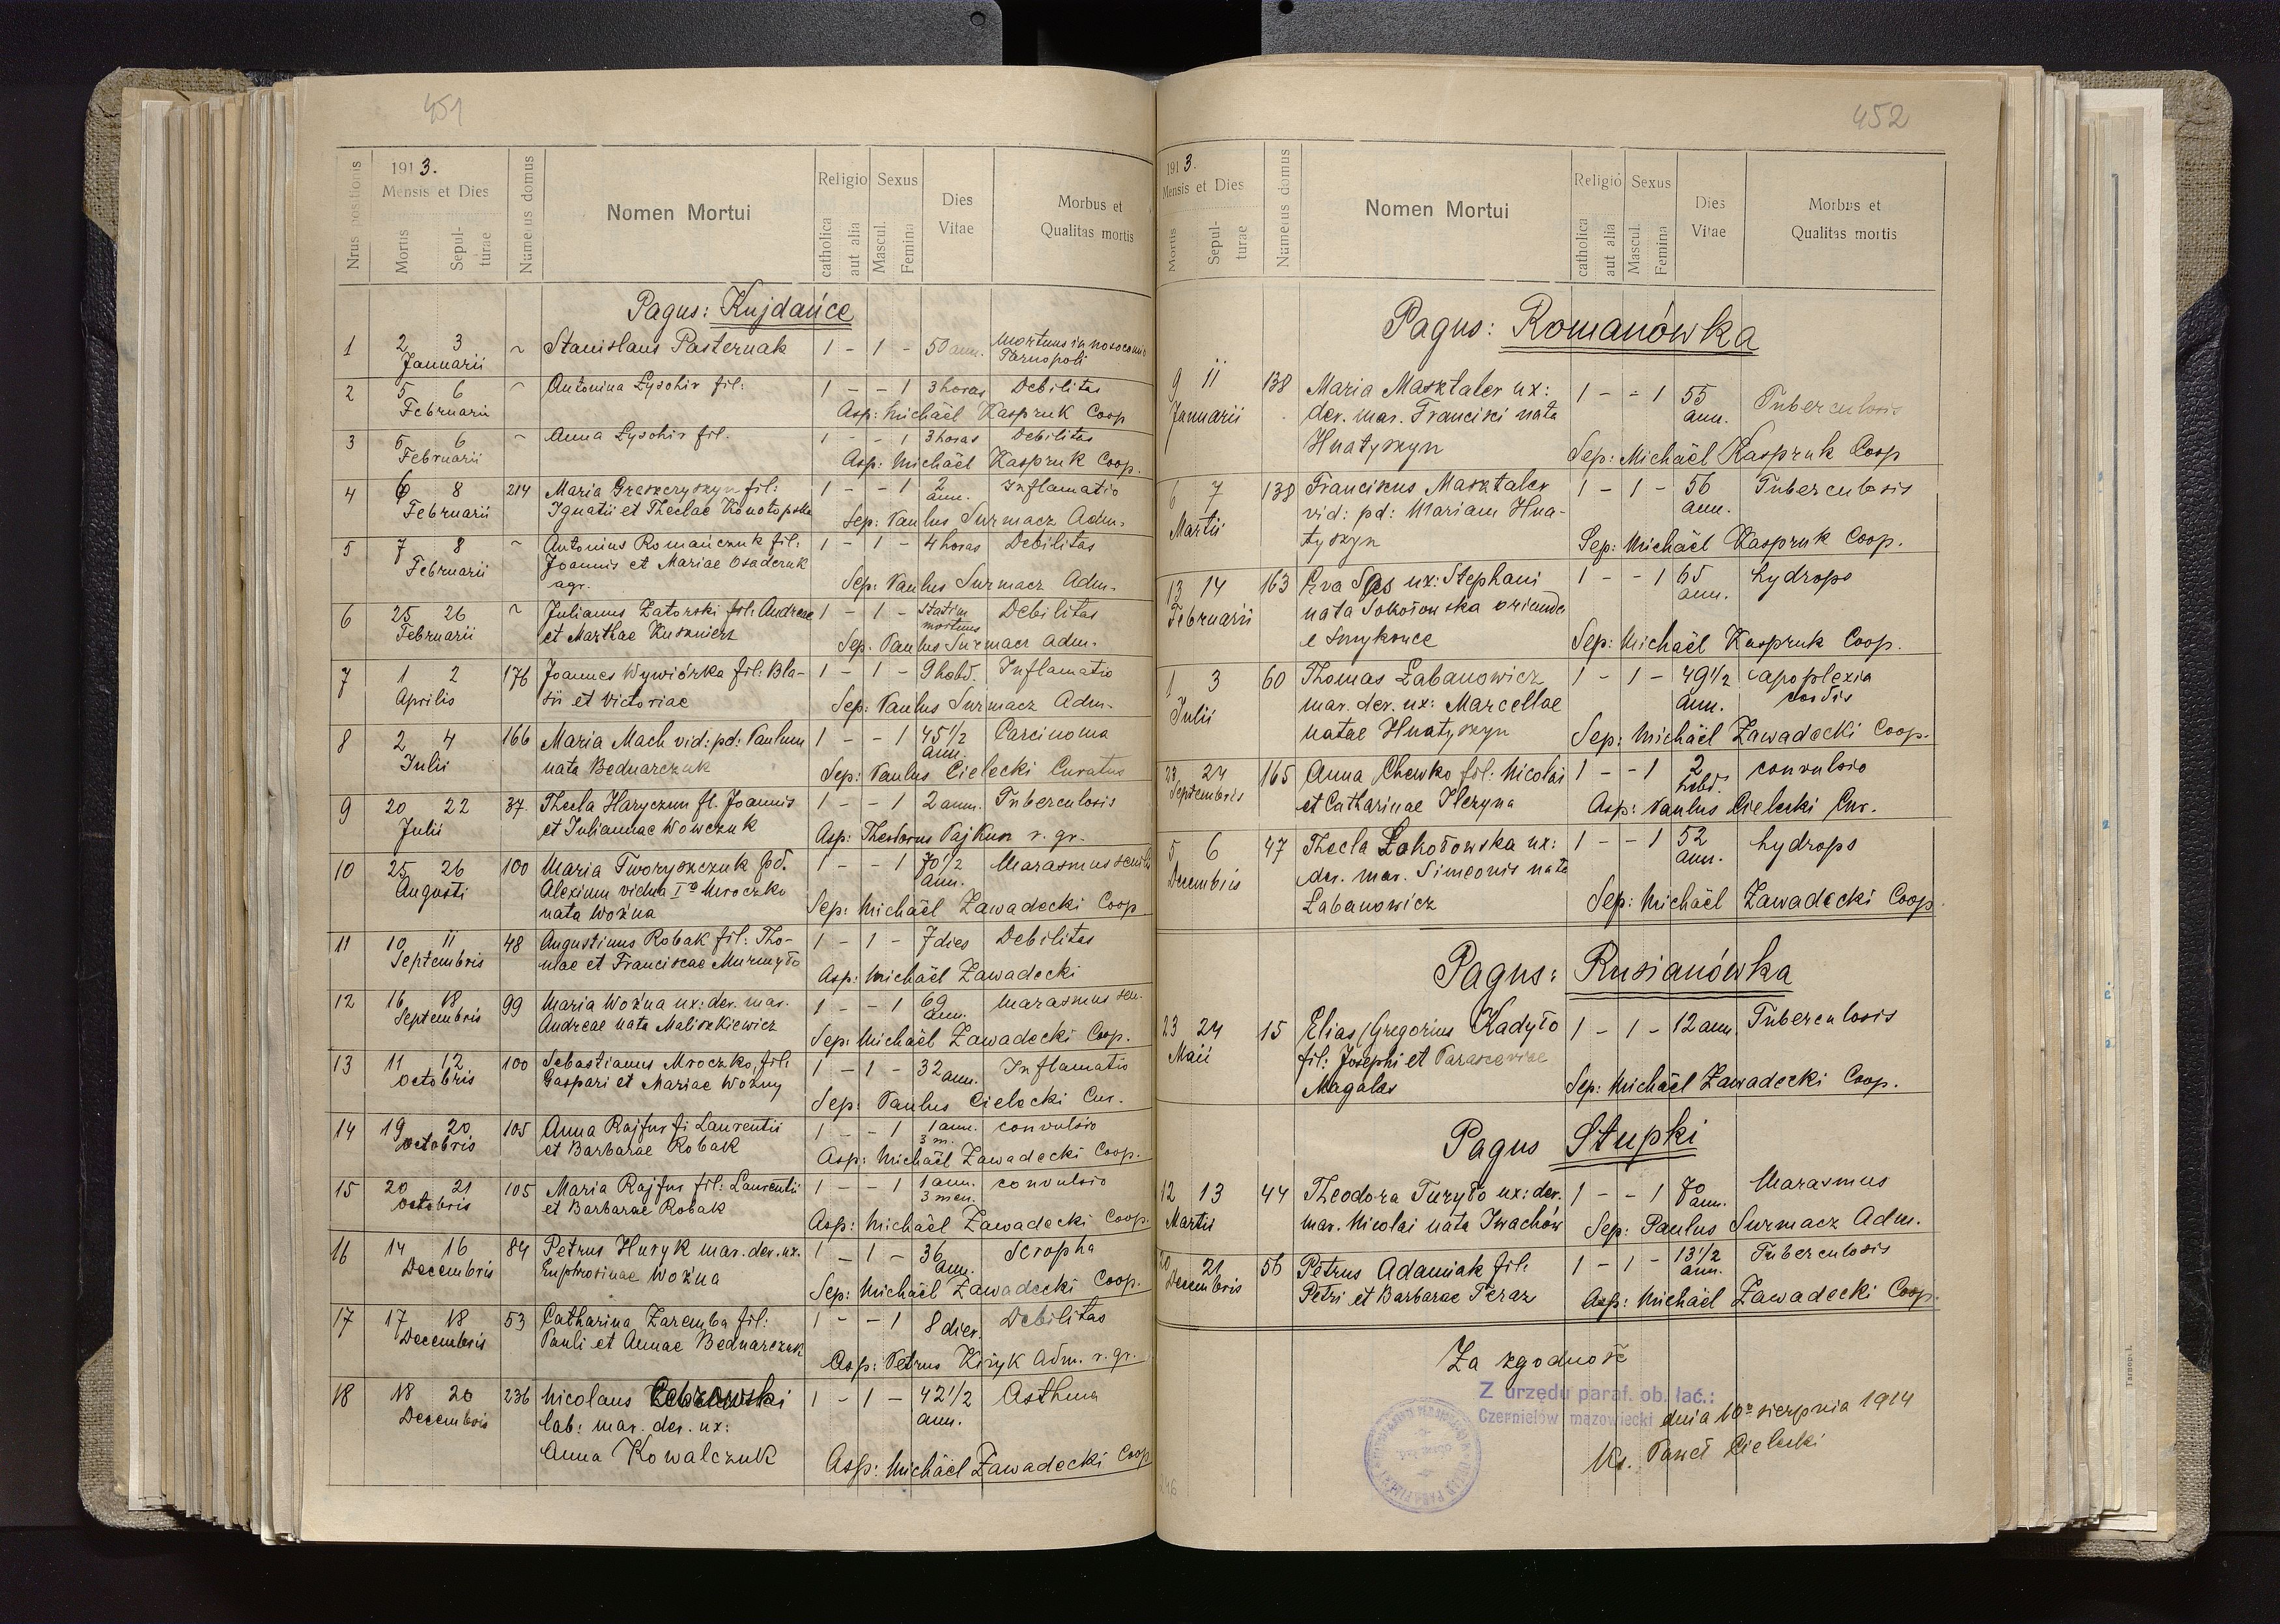 451
1913.
Nrus positionis
Mensis et Dies
Mortis
Sepulturae
Numerus domus
Nomen Mortui
Religio
catholica
aut alia
Sexus
Mascul.
Femina
Dies Vitae
Morbus et Qualitas mortis
Pagus: Kujdańce
1 2 3 Januarii ~ Stanislaus Pasternak 1 - 1 - 50 ann. Mortuus in nosocomio
Tarnopoli
2 5 6 Februarii ~ Antonina Łysohir fil: 1 - - 1 3 horas Debilitas
Asp: Michäel Kaspruk Coop
3 5 6 Februarii ~ Anna Łysohir fil. 1 - - 1 3 horas Debilitas
Asp: Michäel Kaspruk Coop.
4 6 8 Februarii 214 Maria Greszczyszyn fil: 1 - - 1 2 ann. Inflamatio
Ignatii et Theclae Konotopska
Sep: Paulus Surmacz Adm.
5 7 8 Februarii ~ Antonius Romańczuk fil: 1 - 1 - 4 horas Debilitas
Joannis et Mariae Osadczuk
agr.
Sep: Paulus Surmacz Adm.
6 25 26 Februarii ~ Julianus Zatorski fil: Andreae 1 - 1 - statim mortuus Debilitas
et Marthae Kusznierz
Sep. Paulus Surmacz Adm.
7 1 2 Aprilis 176 Joannes Wywiórka fil: Bla- 1 - 1 - 9 hebd. Inflamatio
sii et Victoriae
Sep: Paulus Surmacz Adm.
8 2 4 Julii 166 Maria Mach vid: pd: Paulum 1 - - 1 45 1/2 ann. Carcinoma
nata Bednarczuk
Sep: Paulus Cielecki Curatus
9 20 22 Julii 37. Thecla Haryczun fl. Joannis 1 - - 1 2 ann. Tuberculosis
et Juliannae Wowczuk
Asp: Theodorus Pajkusz r. gr.
10 25 26 Augusti 100 Maria Tworyszczuk pd. 1 - - 1 70 1/2 ann. Marasmus senilis
Alexium vidua Iº Mroczko
nata Woźna
Sep: Michäel Zawadecki Coop
11 10 11 Septembris 48 Augustinus Robak fil: Tho- 1 - 1 - 7 dies Debilitas
mae et Franciscae Murmyło
Asp: Michäel Zawadecki
12 16 18 Septembris 99 Maria Woźna ux: der. mar. 1 - - 1 69 ann. Marasmus sen.
Andreae nata Maliszkiewicz
Sep: Michäel Zawadecki Coop.
13 11 12 Octobris 100 Sebastianus Mroczko, fil: 1 - 1 - 32 ann. Inflamatio
Gaspari et Mariae Woźny
Sep: Paulus Cielecki Cur.
14 19 20 Octobris 105 Anna Rajfur fi Laurentii 1 - - 1 1 ann. 3 m. convulsio
et Barbarae Robak
Asp: Michäel Zawadecki Coop.
15 20 21 Octobris 105 Maria Rajfur fil: Laurentii 1 - - 1 1 ann. 3 men. convulsio
et Barbarae Robak
Asp: Michäel Zawadecki Coop.
16 14 16 Decembris 84 Petrus Huryk mar. der. ux. 1 - 1 - 36 ann. Scropha
Euphrosinae Woźna
Sep: Michäel Zawadecki Coop.
17 17 18 Decembris 53 Catharina Zaremba fil: 1 - - 1 8 dier. Debilitas
Pauli et Annae Bednarczuk
Asp: Petrus Kiryk Adm. r. gr.
18 18 20 Decembris 236 Nicolaus 1 - 1 - 42 1/2 ann. Asthma
lab: mar. der. ux:
Anna Kowalczuk
Asp: Michäel Zawadecki Coop
452
1913.
Mensis et Dies
Mortis
Sepulturae
Numerus domus
Nomen Mortui
Religio
catholica
aut alia
Sexus
Mascul.
Femina
Dies Vitae
Morbus et Qualitas mortis
Pagus: Romanówka
9 11 Januarii 138 Maria Masztaler ux: 1 - - 1 55 ann. Tuberculosis
der. mar. Francisci nata
Hnatyszyn
Sep: Michäel Kaspruk Coop
6 7 Martii 138 Franciscus Masztaler 1 - 1 - 56 ann. Tuberculosis
vid: pd: Mariam Hna-
tyszyn
Sep: Michäel Kaspruk Coop.
13 14 Februarii 163 Eva Sas ux: Stephani 1 - - 1 65 ann. hydrops
nata Sokołowska oriunda
e Smykowce
Sep: Michäel Kaspruk Coop.
1 3 Julii 60 Thomas Łabanowicz 1 - 1 - 49 1/2 ann. apoplexia cordis
mar. der. ux: Marcellae
natae Hnatyszyn
Sep: Michäel Zawadecki Coop.
23 24 Septembris 165 Anna Chewko fil: Nicolai 1 - - 1 2 hebd. convulsio
et Catharinae Ilczyna
Asp: Paulus Cielecki Cur.
5 6 Decembris 47 Thecla Zokołowska ux: 1 - - 1 52 ann. hydrops
der. mar. Simeonis nata
Labanowicz
Sep: Michäel Zawadecki Coop.
Pagus: Rusianówka
23 24 Maii 15 Elias Gregorius Kadyło 1 - 1 - 12 ann. Tuberculosis
fil: Josephi et Parasceviae
Magalas
Sep: Michäel Zawadecki Coop.
Pagus Stupki
12 13 Martii 44 Theodora Turyło ux: der. 1 - - 1 70 ann. Marasmus
mar. Nicolai nata Iwachów
Sep: Paulus Surmacz Adm.
20 21 Decembris 56 Petrus Adamiak fil: 1 - 1 - 13 1/2 ann. Tuberculosis
Petri et Barbarae Teraz
Asp: Michäel Zawadecki Coop.
Za zgodność
Z urzędu paraf. ob. łać.:
Czernielów mazowiecki dnia 10º sierpnia 1914
Ks. Paweł Cielecki